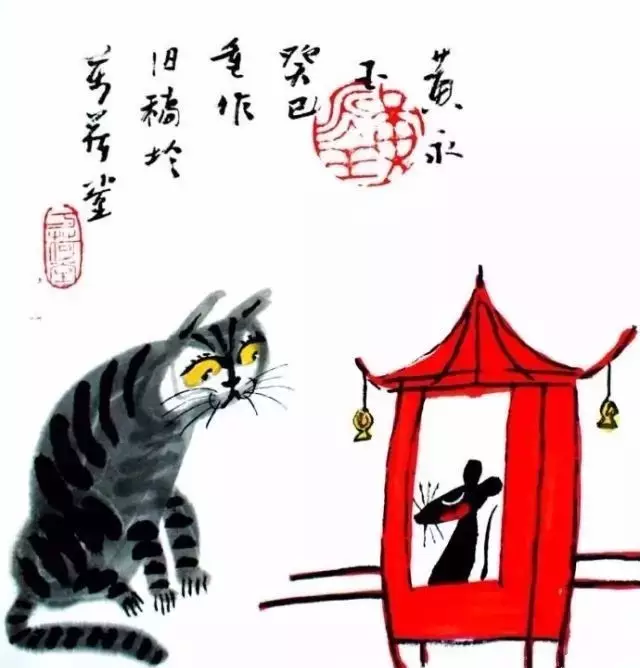 黄永
玉
癸巳
重作
旧稿於
万荷堂